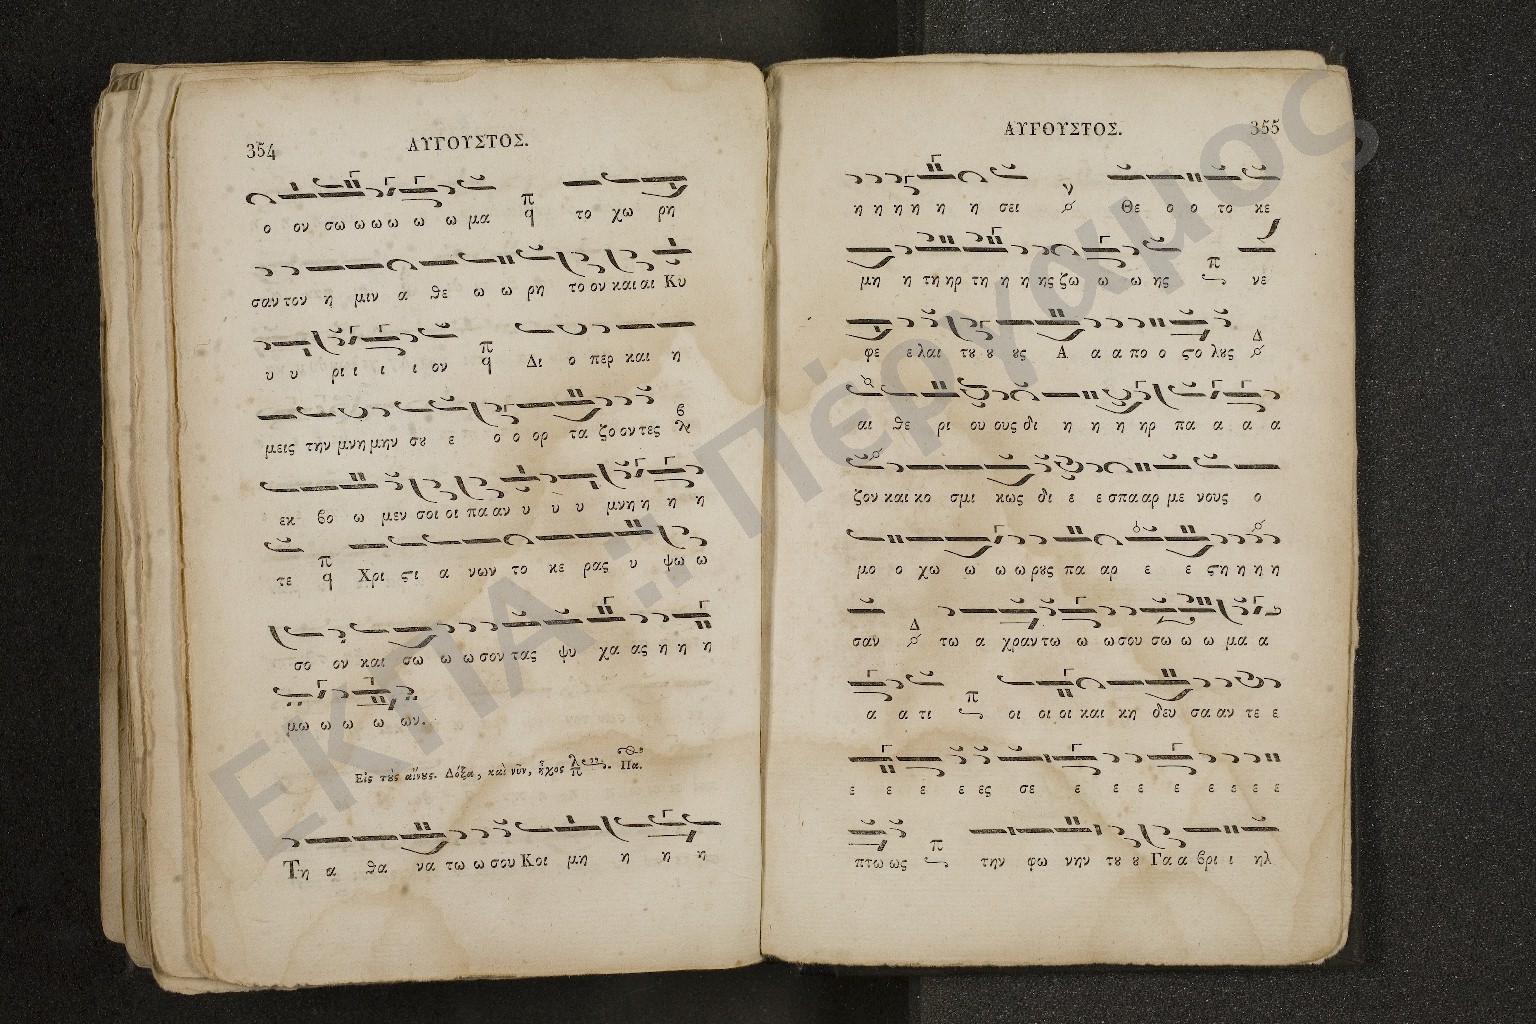 354 ΑΥΓΟΥΣΤΟΣ.
ο ον σω ω ω ω ω ω μα π q το χω ρη
σαν τον η μιν α θε ω ω ρη το ον και αι Κυ
υ υ ρι ι ι ι ον π q Δι ο περ και η
μεις την μνη μην σȣ ε ο ο ορ τα ζο ον τες
εκ βο ω μεν σοι οι πα αν υ υ υ μνη η η η
τε π q Χρι ϛι α νων το κε ρας υ ψω ω
σο ον και σω ω ω σον τας ψυ χα ας η η η
μω ω ω ω ων.
Εἰς τȣ̀ς αἴνȣς. Δόξα, καὶ νῦν, ἦχος Πα.
Τη α θα να τω ω σου Κοι μη η η η
355 ΑΥΓΟΥΣΤΟΣ.
η η η η η η σει ν Θε ο ο το κε
μη η τη ηρ τη η η ης ζω ω ω ης π νε
φε ε λαι τȣ ȣ ȣς Α α α πο ο ϛο λȣς Δ
αι θε ρι ου ους δι η η η ηρ πα α α α
ζον και κο σμι κως δι ε ε σπα αρ με νους ο
μο ο χω ω ω ω ρȣς πα αρ ε ε ϛη η η η
σαν Δ τω α χραν τω ω ω σου σω ω ω μα α
α α τι π οι οι οι και κη δευ σα αν τε ε
ε ε ε ε ες σε ε ε ε ε ε ε ε ε
πτω ως π την φω νην τȣ ȣ Γα α βρι ι ηλ
ΕΚΠΑ :: Πέργαμος